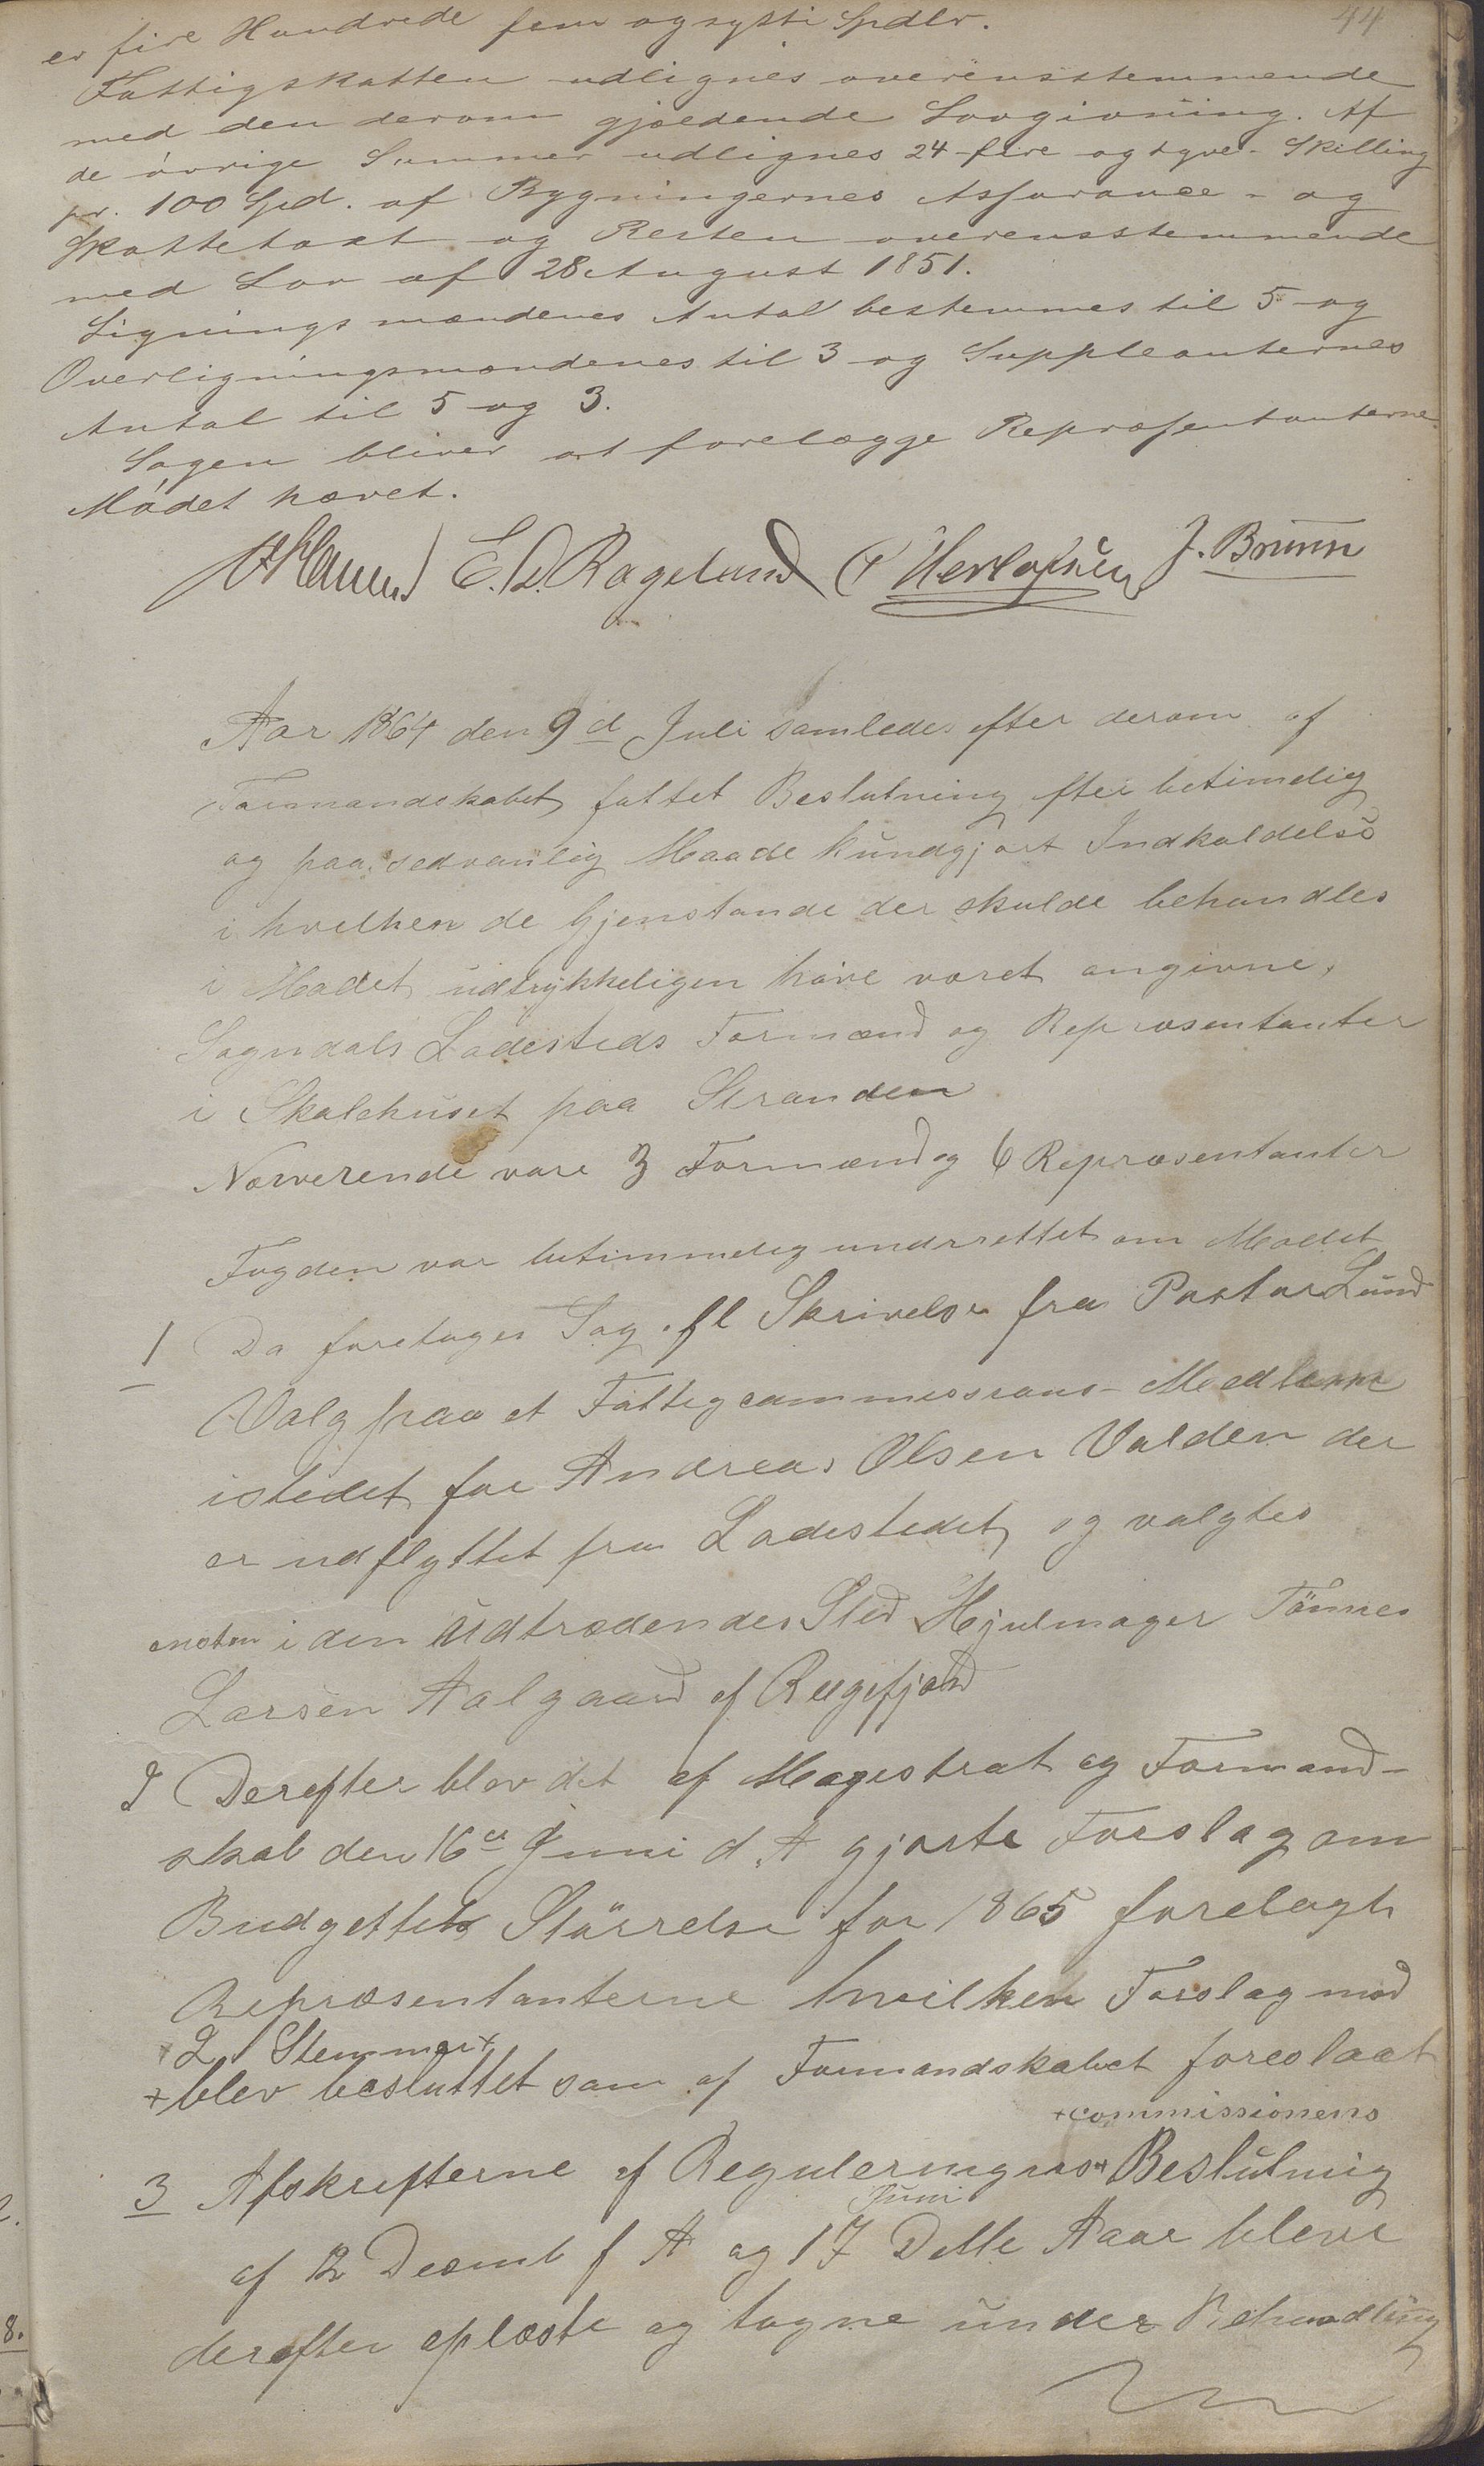 44
er fire Hundrede fem og sytti Spdlr.
Fattigskatten udlignes overensstemmende
med den derom gjældende Lovgivning. Af
de övrige Summer udlignes 24 fire og tyve - Skilling
pr. 100 Spd. af Bygningernes Assurance - og
Skattetaxt og Resten overensstemmende
med Lov af 28 August 1851.
Ligningsmændenes Antal bestemmes til 5 og
Overligningsmændenes til 3 og Suppleanternes
Antal til 5 og 3.
Sagen bliver at forelægge Repræsentanterne
Mödet hævet.
E. D. Rageland Herlofsen J. Bruun
Aar 1864 den 9d Juli samledes efter derom af
Formandskabet fattet Beslutning efter betimelig
og paa sedvanlig Maade kundgjort Indkaldelse
i hvilken de Gjenstande der skulde behandles
i Mødet udtrykkeligen have været angivne,
Sogndals Ladesteds Formænd og Repræsentanter
i Skolehuset paa Stranden
Nærverende vare 3 Formænd og 6 Repræsentanter
Fogden var betimmelig underrettet om Mødet
1 Da foretages Sag. fl Skrivelse fra Pastor Lund
Valg paa et Fattigcommissions-Medlem
istedet for Andreas Olsen Valden der
er udflyttet fra Ladestedet, og valgtes
i den Udtrædendes Sted Hjulmager Tönnes
Larsen Aalgaard af Regefjord
2 Derefter blev det af Magistrat og Formand-
skab den 16de Juni d. A gjorte Forslag om
Budgettets Störrelse for 1865 forelagt
Repræsentanterne hvilken Forslag mod
+ 2 Stemmer +
+ blev besluttet som af Formandskabet foreslaaet
+ commissionens
3 Afskrifterne af Regulerings + Beslutning
Juni
af 12 Decmb f A og 17 Dette Aar bleve
derefter oplæste og tagne under Behandling
8.